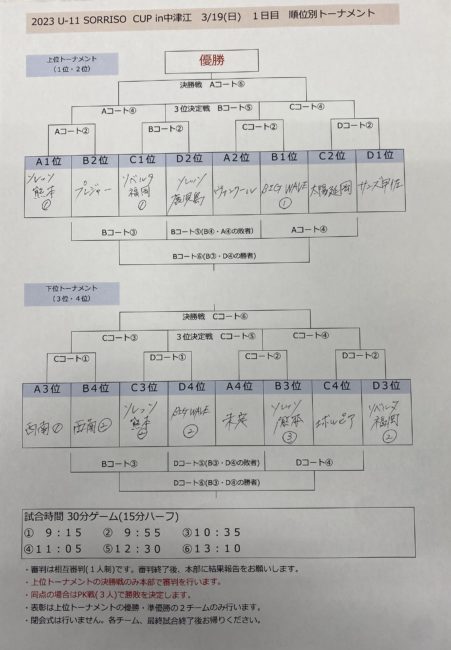 2023 U-11 SORRISO CUP in中津江 3/19(日) 1日目 順位別トーナメント
上位トーナメント
(1位・2位)
優勝
決勝戦 Aコート⑤
Aコート④ 3位決定戦 Bコート⑤ Cコート④
Aコート② Bコート② Cコート② Dコート②
A1位 B2位 C1位 D2位 A2位 B1位 C2位 D1位
ソレッソ熊本 プレジャー リベルタ福岡① ソレッソ鹿児島 ヴァンクール BIG WAVE① 太陽延岡 サンズ甲佐
Bコート③ Bコート⑤(B④・A④の敗者) Aコート④
Bコート⑥(B③・D④の勝者)
下位トーナメント
(3位・4位)
決勝戦 Cコート⑥
Cコート③ 3位決定戦 Cコート⑤ Cコート④
Cコート① Dコート① Cコート② Dコート②
A3位 B4位 C3位 D4位 A4位 B3位 C4位 D3位
西南① 西南② ソレッソ熊本② BIG WAVE② 未来 ソレッソ熊本③ エボルピア リベルタ福岡②
Bコート③ Dコート⑤(B③・D④の敗者) Dコート④
Dコート⑥(B③・D④の勝者)
試合時間 30分ゲーム(15分ハーフ)
① 9:15 ② 9:55 ③10:35
④11:05 ⑤12:30 ⑥13:10
・審判は相互審判(1人制)です。審判終了後、本部に結果報告をお願いします。
・上位トーナメントの決勝戦のみ本部で審判を行います。
・同点の場合はPK戦(3人)で勝敗を決定します。
・表彰は上位トーナメントの優勝・準優勝の2チームのみ行います。
・閉会式は行いません。各チーム、最終試合終了後お帰りください。